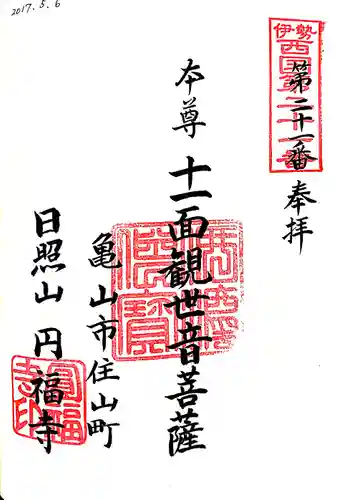 2017.5.6
伊勢
西国第二十一番
第二十一番 奉拝
本尊 十一面観世音菩薩
亀山市住山町
日照山 円福寺
円福寺印